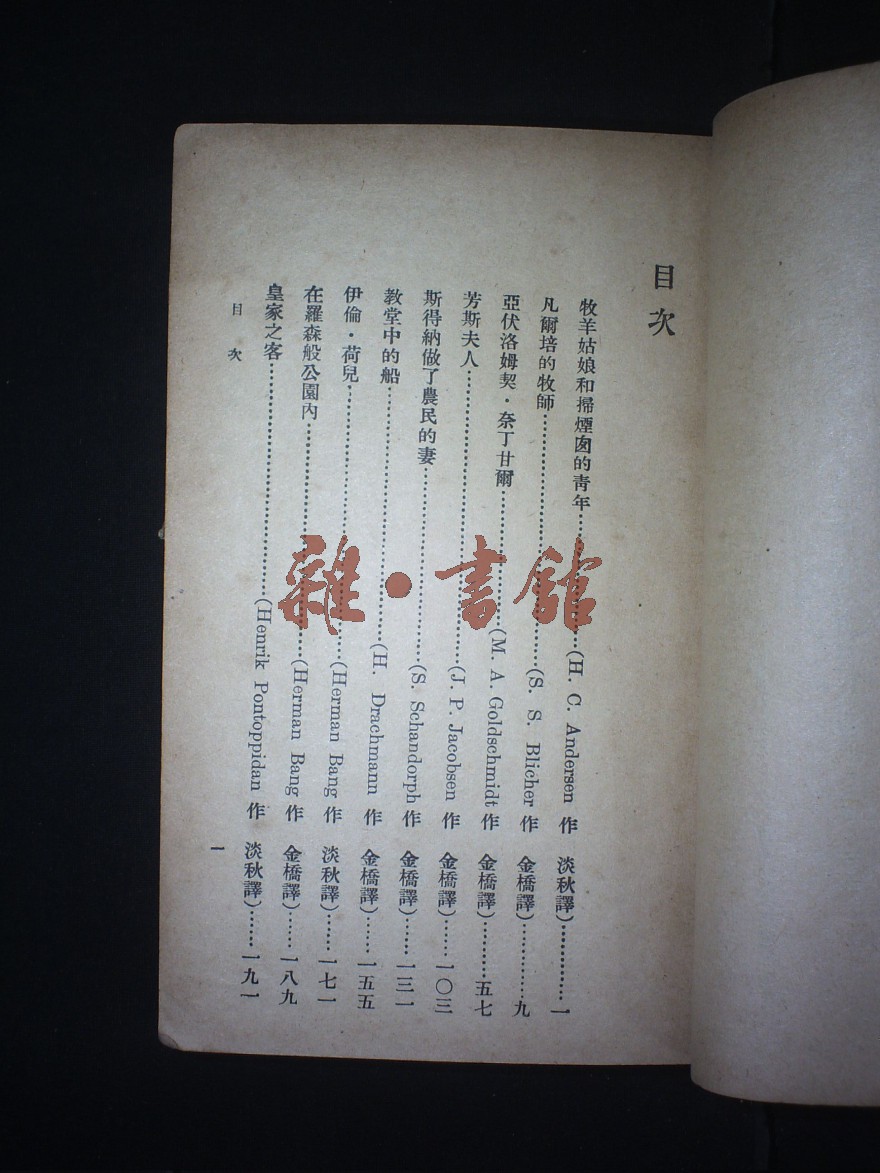 目次
牧羊姑娘和掃煙囱的青年……………(H. C. Andersen 作 淡秋譯)……………一
凡爾培的牧師……………(S. S. Blicher 作 金橋譯)……………九
亞伏洛姆契·奈丁甘爾……………(M. A. Goldschmidt 作 金橋譯)……………五七
芳斯夫人……………(J. P. Jacobsen 作 金橋譯)……一〇三
斯得納做了農民的妻……………(S. Schandorph 作 金橋譯)……一三一
教堂中的船……………(H. Drachmann 作 金橋譯)……一五五
伊倫·荷兒……………(Herman Bang 作 淡秋譯)……一七一
在羅森般公園內……………(Herman Bang 作 金橋譯)……一八九
皇家之客……………(Henrik Pontoppidan 作 淡秋譯)……一九一
目次
一
雜·書館